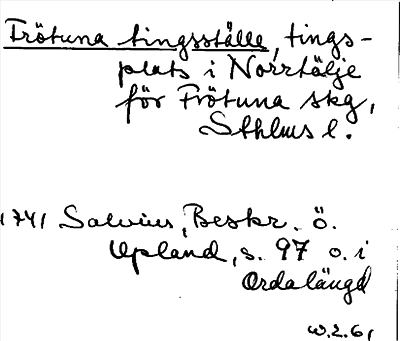 Frötuna tingsställe, tings-
plats i Norrtälje
för Frötuna skg,
Sthlms l.
1741 Salvius, Beskr. ö.
Upland, s. 97 o. i
Ordalängd
W.2.61